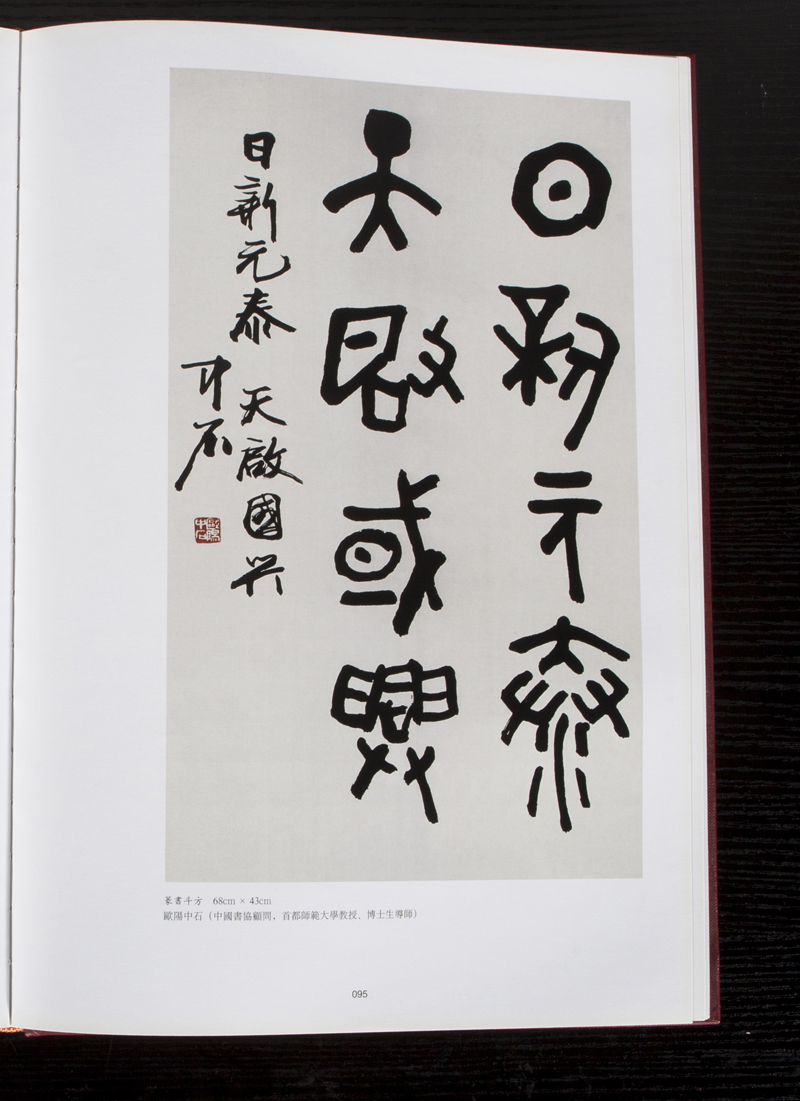 日新元泰
天啟國興
日新元泰 天啟國興
中石
歐陽中石
篆書斗方 68cm × 43cm
歐陽中石（中國書協顧問，首都師範大學教授、博士生導師）
095